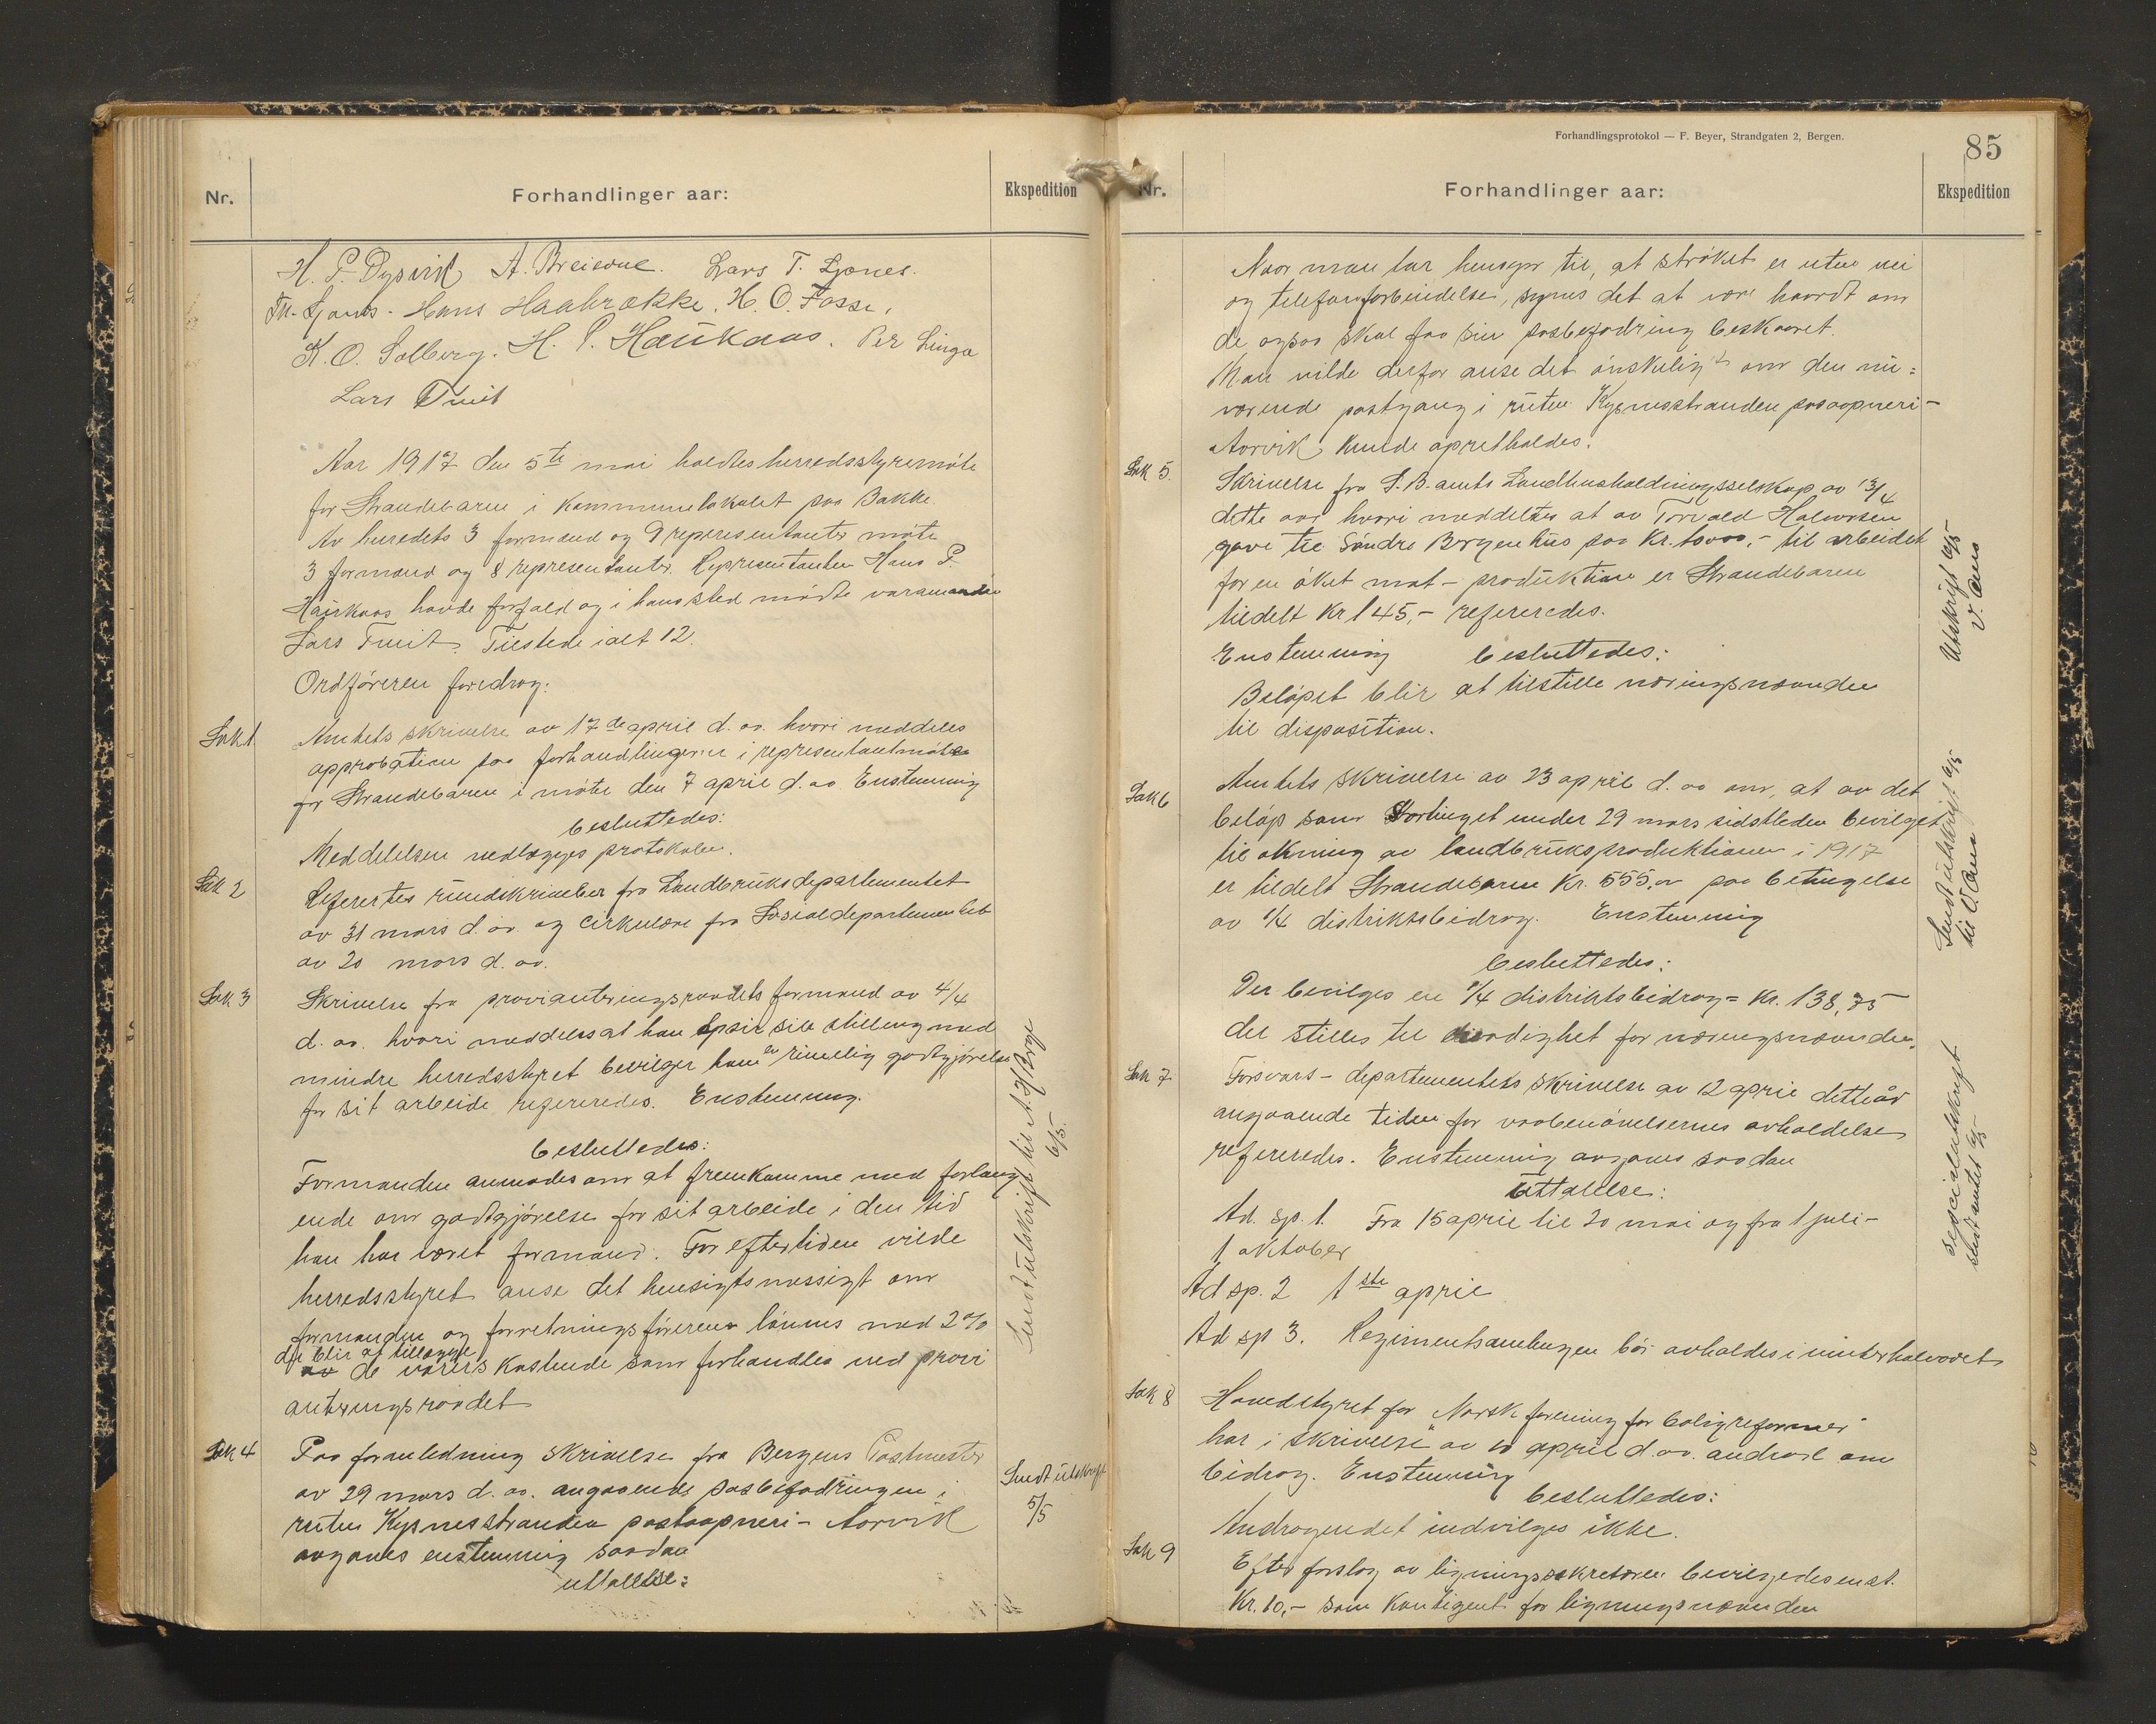 Nr.
Forhandlinger aar:
Ekspedition
H. P. Dysvik A. Breievne. Lars T. Ljones.
Th. Ljones. Hans Haabrække. H. O. Fosse.
K. O. Solberg. H. P. Haukaas. Per Linga
Lars Tveit
Aar 1917 den 5te mai holdtes herredsstyremöte
for Strandebarm i kommunelokalet paa Bakke.
Av herredets 3 formænd og 9 representanter möte
3 formænd og 8 representanter. Representanten Hans P.
Haukaas havde forfald og i hans sted mödte varamanden
Lars Tveit. Tilstede ialt 12.
Ordföreren foredrog:
Sak 1. Amtets skrivelse av 17de april d. aa. hvori meddeles
approbation paa forhandlingerne i representantmöte
for Strandebarm i möte den 7 april d. aa. Enstemmig
besluttedes:
Meddelelsen vedlægges protokolen.
Sak 2 Refertes rundskrivelser fra Landbruksdepartementet
av 31 mars d. aa. og cirkulære fra Sosialdepartementet
av 20 mars d. aa.
Sak 3 Skrivelse fra provianteringsraadets formand av 4/4
d. aa. hvori meddeles at han opsir sin stilling med
mindre herredsstyret bevilger ham en rimelig godtgjörelse
for sit arbeide refereredes. Enstemmig.
besluttedes:
Formanden anmodes om at fremkomme med forlang
ende om godtgjörelse for sit arbeide i den tid
han har været formand. For eftertiden vilde
herredsstyret anse det hensigtsmæssigt om
formanden og forretningsföreren lönnes med 2%
der blir at tillægge
av de varers kostende som forhandles ved provi
anteringsraadet
Sendt utskrift til A. H. Berge
6/5.
Sak 4 Paa foranledning skrivelse fra Bergens Postmester
av 29 mars d. aa. angaaende posbefodringen i
ruten Kysnesstranden postaapneri - Aarvik
avgaves enstemmig saadan
uttalelse:
Sendt utskrift
5/5
Forhandlingsprotokol — F. Beyer, Strandgaten 2, Bergen.
85
Nr.
Forhandlinger aar:
Ekspedition
Naar man tar hensyn til, at ströket er uten vei
og telefonforbindelse, synes det at være haardt om
de ogsaa skal faa sin posbefodring beskaaret.
Man vilde derfor anse det önskeligt om den nu=
værende postgang i ruten Kysnesstranden posaapneri -
Aarvik kunde opretholdes.
Sak 5. Skrivelse fra S. B. amts Landhusholdningsselskap av 13/4
dette aar hvori meddeltes at av Torvald Halvorsen
gave til Söndre Bergenhus paa Kr. 10000,- til arbeidet
for en öket mat-produktion er Strandebarm
tildelt Kr 145,- refereredes.
Enstemmig besluttedes:
Belöpet blir at tilstille næringsnævnden
til disposition.
Utskrift 6/5
V. Ans
Sak 6 Amtets skrivelse av 23 april d. aa om, at av det
belöp som Stortinget under 29 mars sidstleden bevilget
til ökning av landbruksproduktionen i 1917
er tildelt Strandebarm Kr. 555,00 paa betingelse
av 1/4 distriktsbidrag. Enstemmig
besluttedes:
Der bevilges en 1/4 distriktsbidrag = Kr. 138,75
der stilles til raadighet for næringsnævnden.
Sendt utskrift 6/5
til V. Ans
Sak 7 Forsvars-departementets skrivelse av 12 april dette år
angaaende tiden for vaabenövelsernes avholdelse
refereredes. Enstemmig avgaves saadan
Uttalelse:
Ad. sp. 1. Fra 15 april til 20 mai og fra 1 juli -
1 oktober
Ad sp. 2 1ste april
Ad sp 3. Regimentsamlingen bör avholdes i vinterhalvaaret
utskrift
sendt amtet 6/5
Sak 8 Hovedstyret for "Norsk forening for boligreformer"
har i skrivelse av 10 april d. aa. andradd om
bidrag. Enstemmig
besluttedes:
Andragendet indvilges ikke.
Sak 9 Efter forslag av ligningssekretæren bevilgedes enst.
Kr. 10,- som kontigent for ligningsnævnden